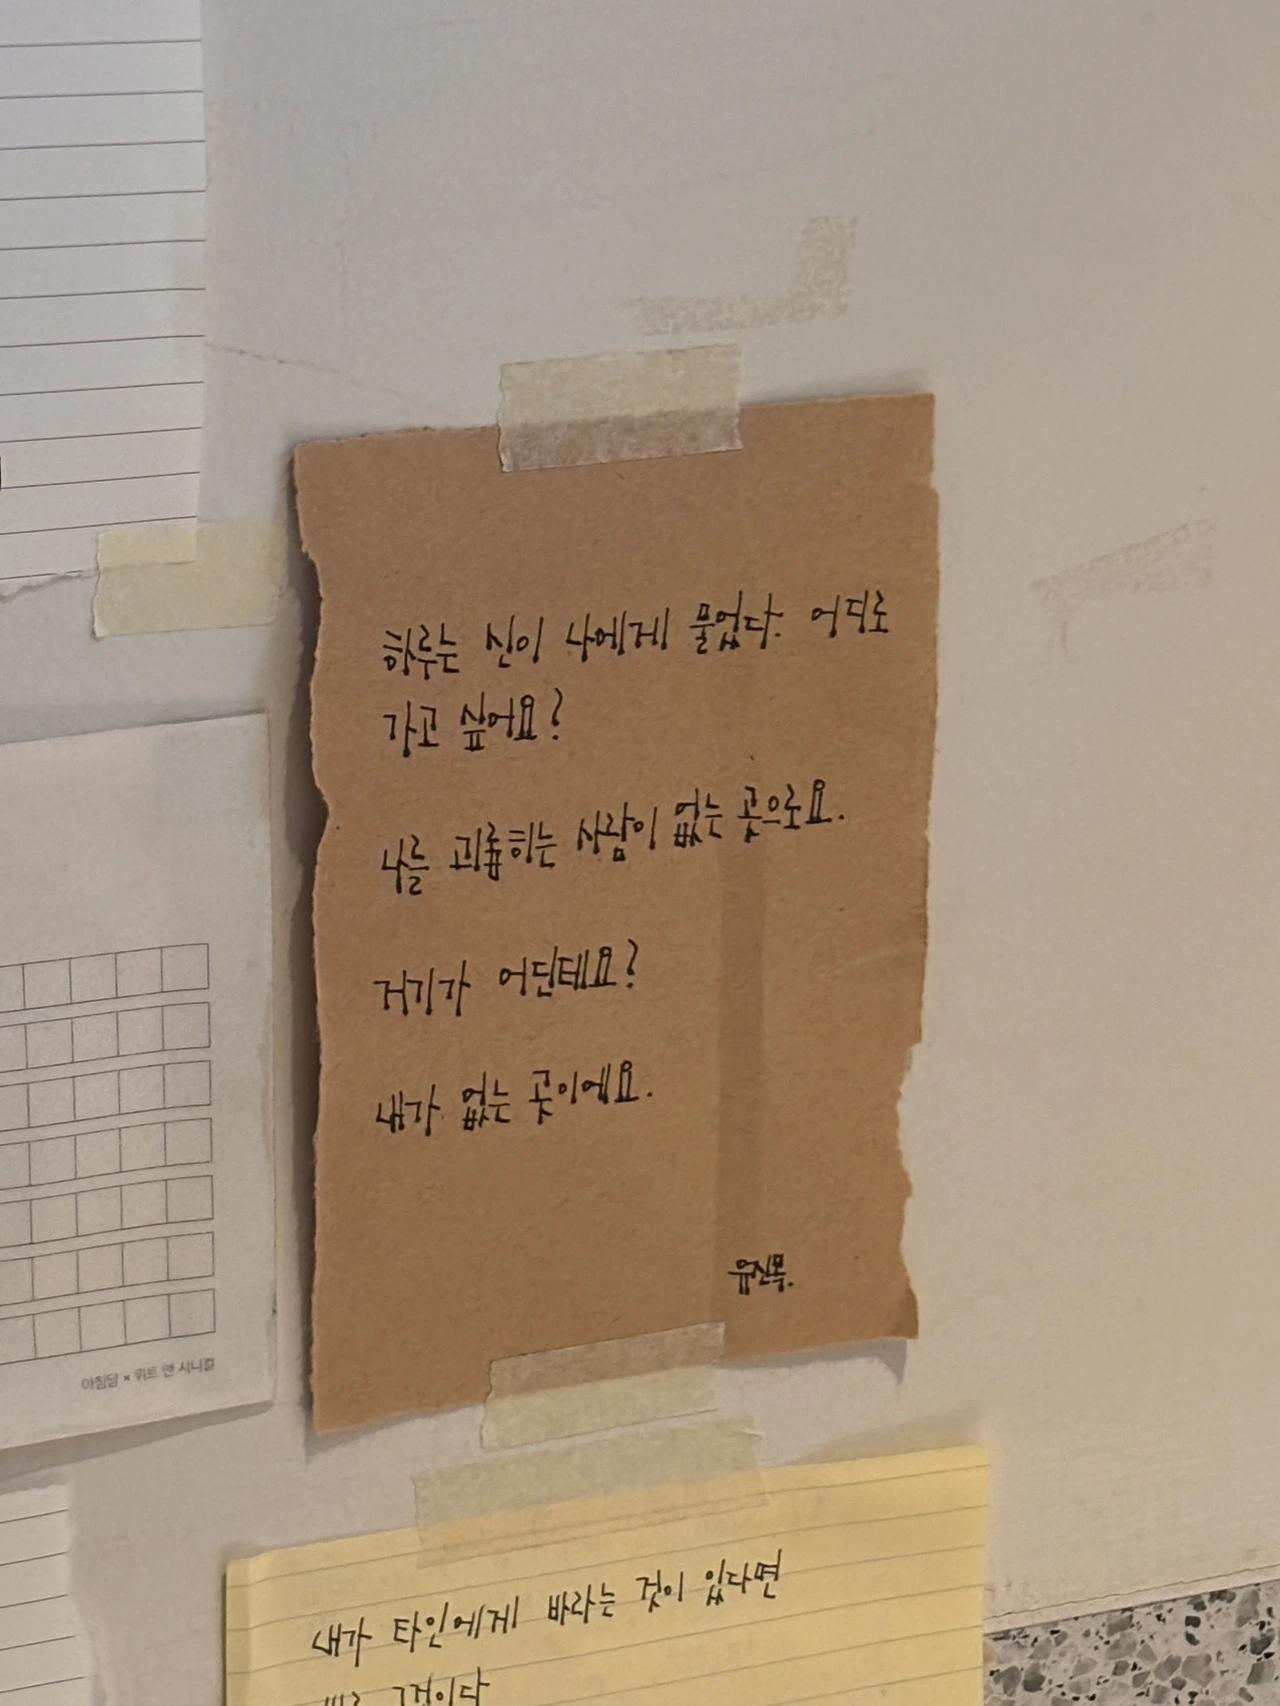 하루는 신이 나에게 물었다. 어디로
가고 싶어요?
나를 괴롭히는 사람이 없는 곳으로요.
거기가 어딘데요?
내가 없는 곳이에요.
유신목.
아침달 × 위트 앤 시니컬
내가 타인에게 바라는 것이 있다면
바로 그것이다